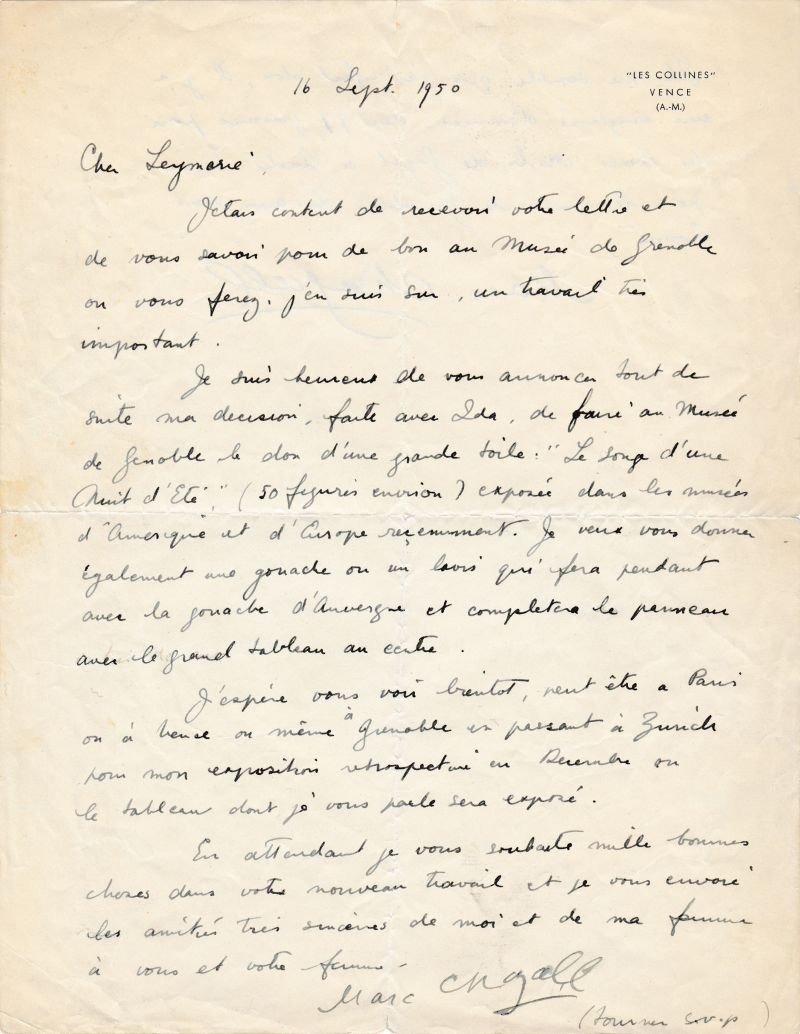 16 Sept. 1950
"LES COLLINES"
VENCE
(A.-M.)
Cher Leymarie
J'etais content de recevoir votre lettre et
de vous savoir pour de bon au Musée de Grenoble
ou vous ferez, j'en suis sur, un travail très
important.
Je suis heureux de vous annoncer tout de
suite ma decision, faite avec Ida, de faire au Musée
de Grenoble le don d'une grande toile: "Le songe d'une
Nuit d'Eté", (50 figures environ) exposée dans les musées
d'Amerique et d'Europe recemment. Je veux vous donner
également une gouache ou un lavis qui fera pendant
avec la gouache d'Auvergne et completera le panneau
avec le grand tableau au centre.
J'espère vous voir bientot, peut être a Paris
ou à Vence ou même à Grenoble en passant à Zurich
pour mon exposition retrospective en Decembre ou
le tableau dont je vous parle sera exposé.
En attendant je vous souhaite mille bonnes
choses dans votre nouveau travail et je vous envoie
les amitiés très sincères de moi et de ma femme
à vous et votre femme.
Marc Chagall
(tourner s.v.p)